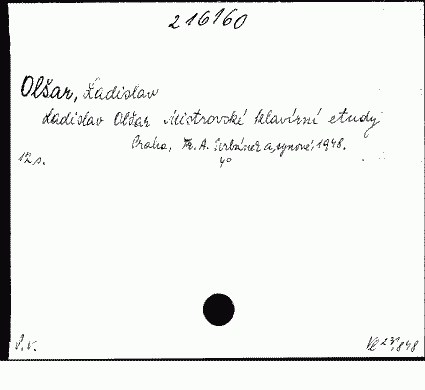 216160
Olšar, Ladislav
Ladislav Olšar Mistrovské klavírní etudy
Praha, Fr. A. Urbánek a synové, 1948.
12 s. 4°